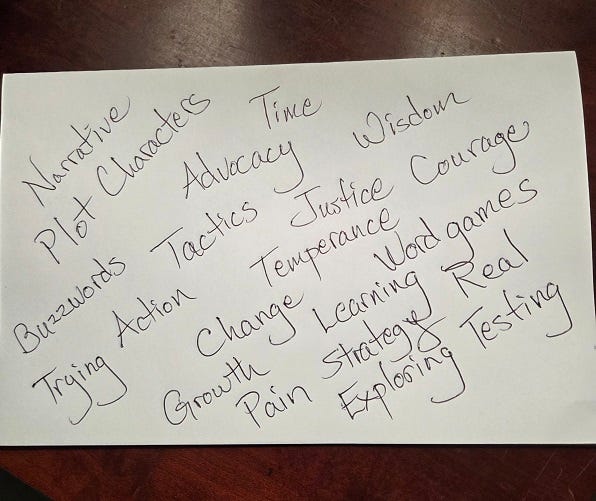 Narrative
Plot Characters
Time
Advocacy
Wisdom
Buzzwords
Tactics
Justice
Courage
Trying
Action
Temperance
Word games
Change
Learning
Real
Growth
Strategy
Testing
Pain
Exploring